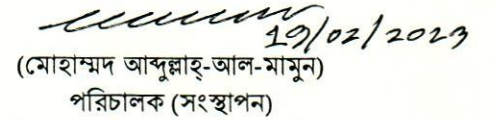 19/02/2023
(মোহাম্মদ আব্দুল্লাহ্-আল-মামুন)
পরিচালক (সংস্থাপন)